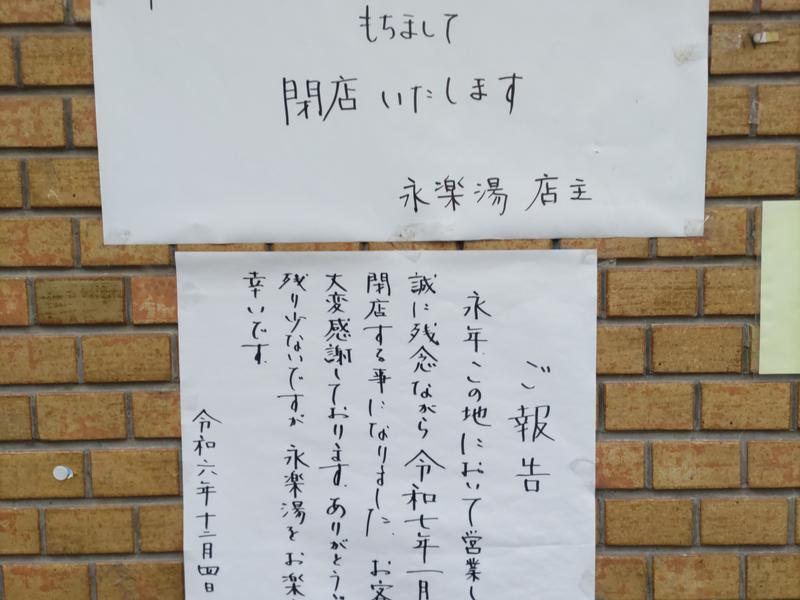 もちまして
閉店いたします
永楽湯 店主
ご報告
永年、この地において営業し
誠に残念ながら 令和七年一月
閉店する事になりました。お客
大変感謝しております。ありがとうご
残り少ないですが 永楽湯をお楽
幸いです。
令和六年十二月四日